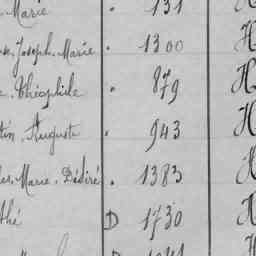 Marie . 131 H
Joseph. Marie . 1300 H
Théophile . 879 H
Auguste . 943 H
Marie. Désiré . 1383 H
thé D 1730 H